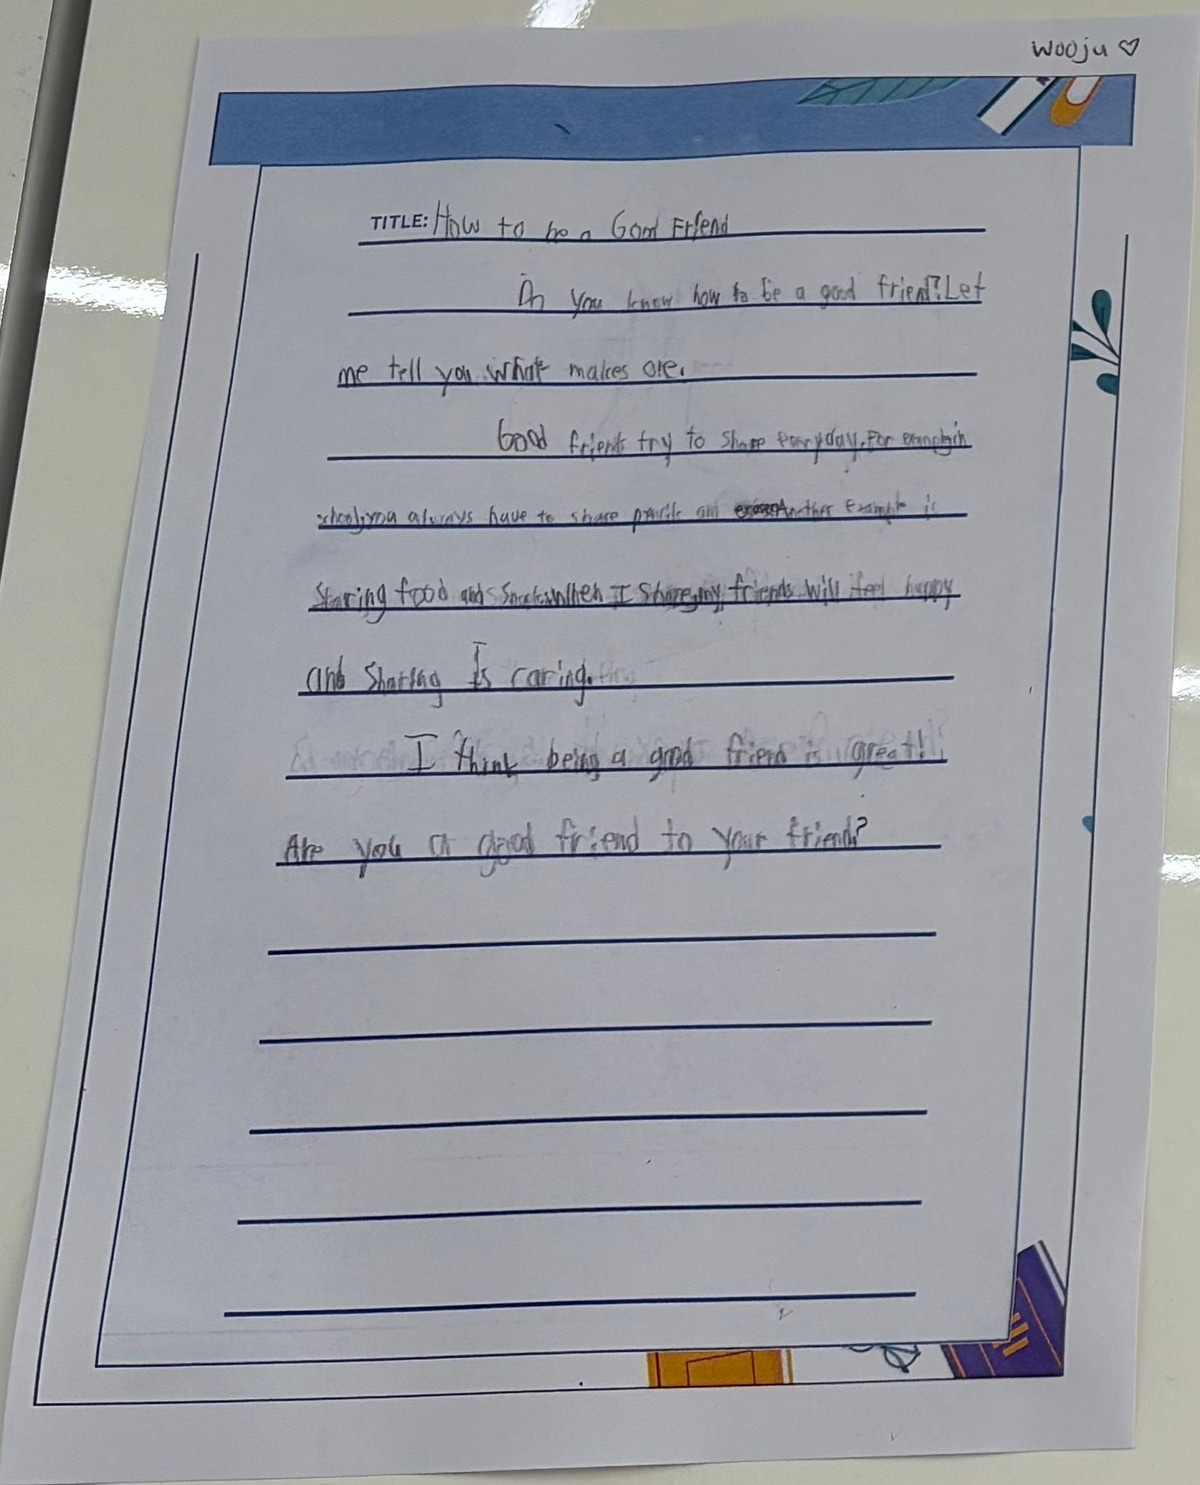 wooju ♡
TITLE: How to be a Good Friend
Do you know how to be a good friend? Let
me tell you what makes one.
Good friends try to share everyday. For example, in
school, you always have to share pencils and Another example is
Sharing food and snacks. When I share, my friends will feel happy
and Sharing Is caring.
I think being a good friend is great!
Are you a good friend to your friends?